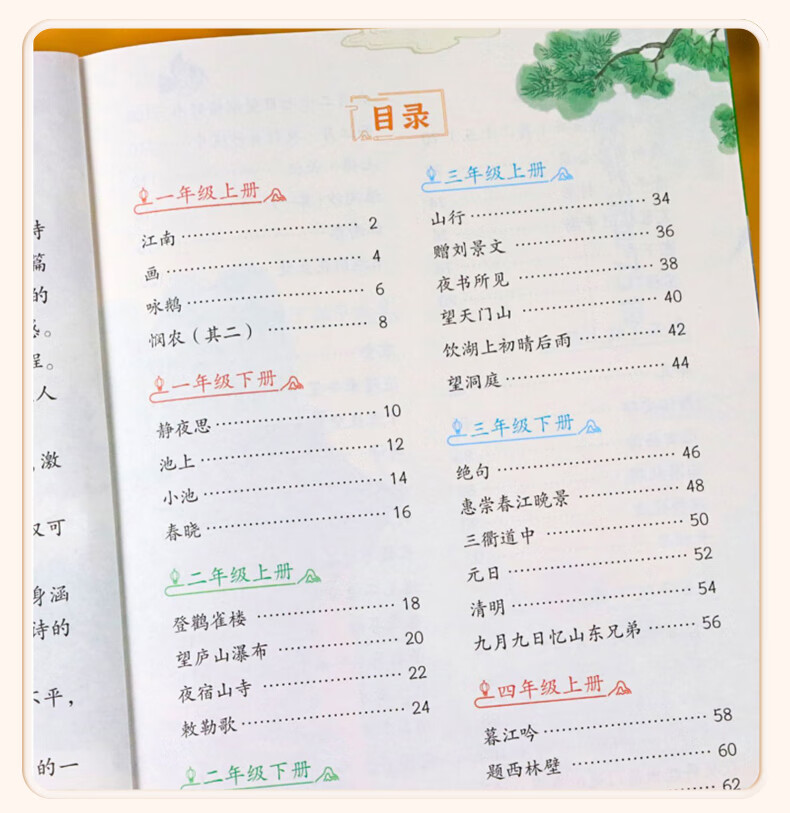 诗
篇
的
感。
程。
人
激
又可
身涵
诗的
不平，
的一
目录
一年级上册
江南 2
画 4
咏鹅 6
悯农（其二） 8
一年级下册
静夜思 10
池上 12
小池 14
春晓 16
二年级上册
登鹳雀楼 18
望庐山瀑布 20
夜宿山寺 22
敕勒歌 24
二年级下册
三年级上册
山行 34
赠刘景文 36
夜书所见 38
望天门山 40
饮湖上初晴后雨 42
望洞庭 44
三年级下册
绝句 46
惠崇春江晚景 48
三衢道中 50
元日 52
清明 54
九月九日忆山东兄弟 56
四年级上册
暮江吟 58
题西林壁 60
62